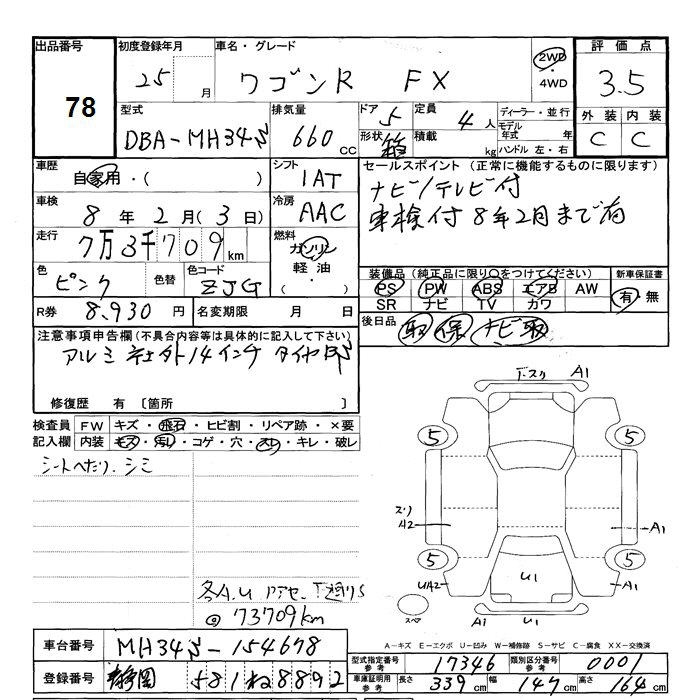 出品番号 初度登録年月 車名・グレード 評価点
78 25 月 ワゴンR FX 2WD・4WD 3.5
型式 排気量 ドア 5 定員 4人 ディーラー・並行 外装 内装
DBA-MH34S 660CC 形状 箱 積載 kg モデル年式 年 ハンドル 左・右 C C
車歴 自家用・( ) シフト 1AT セールスポイント(正常に機能するものに限ります)
車検 8年2月(3日) 冷房 AAC ナビ/テレビ付
走行 7万3千709km 燃料 ガソリン 軽油・( ) 車検付8年2月まで有
色 ピンク 色替 色コード ZJG 装備品(純正品に限り○をつけてください) 新車保証書
PS PW ABS エアB AW 有・無
SR ナビ TV カワ
R券 8,930円 名変期限 月 日 後日品 取 保 ナビ取
注意事項申告欄(不具合内容等は具体的に記入して下さい)
修復歴 有〔箇所 〕
検査員記入欄 FW キズ・飛石・ヒビ割・リペア跡・×要
内装 キズ・汚れ・コゲ・穴・スレ・キレ・破レ
シートへたり、シミ
F.スリ A1
5 5
スリ
A2 A1
5 5
UA2 U1 A1
スペア A1 U1
各A.U
@73709km
A-キズ E-エクボ U-凹み W-補修跡 S-サビ C-腐食 XX-交換済
車台番号 MH34S-154678 型式指定番号 参考 17346 類別区分番号 参考 0001
登録番号 静岡 581ね8892 車庫証明用 参考 長さ 339cm 幅 147cm 高さ 164cm